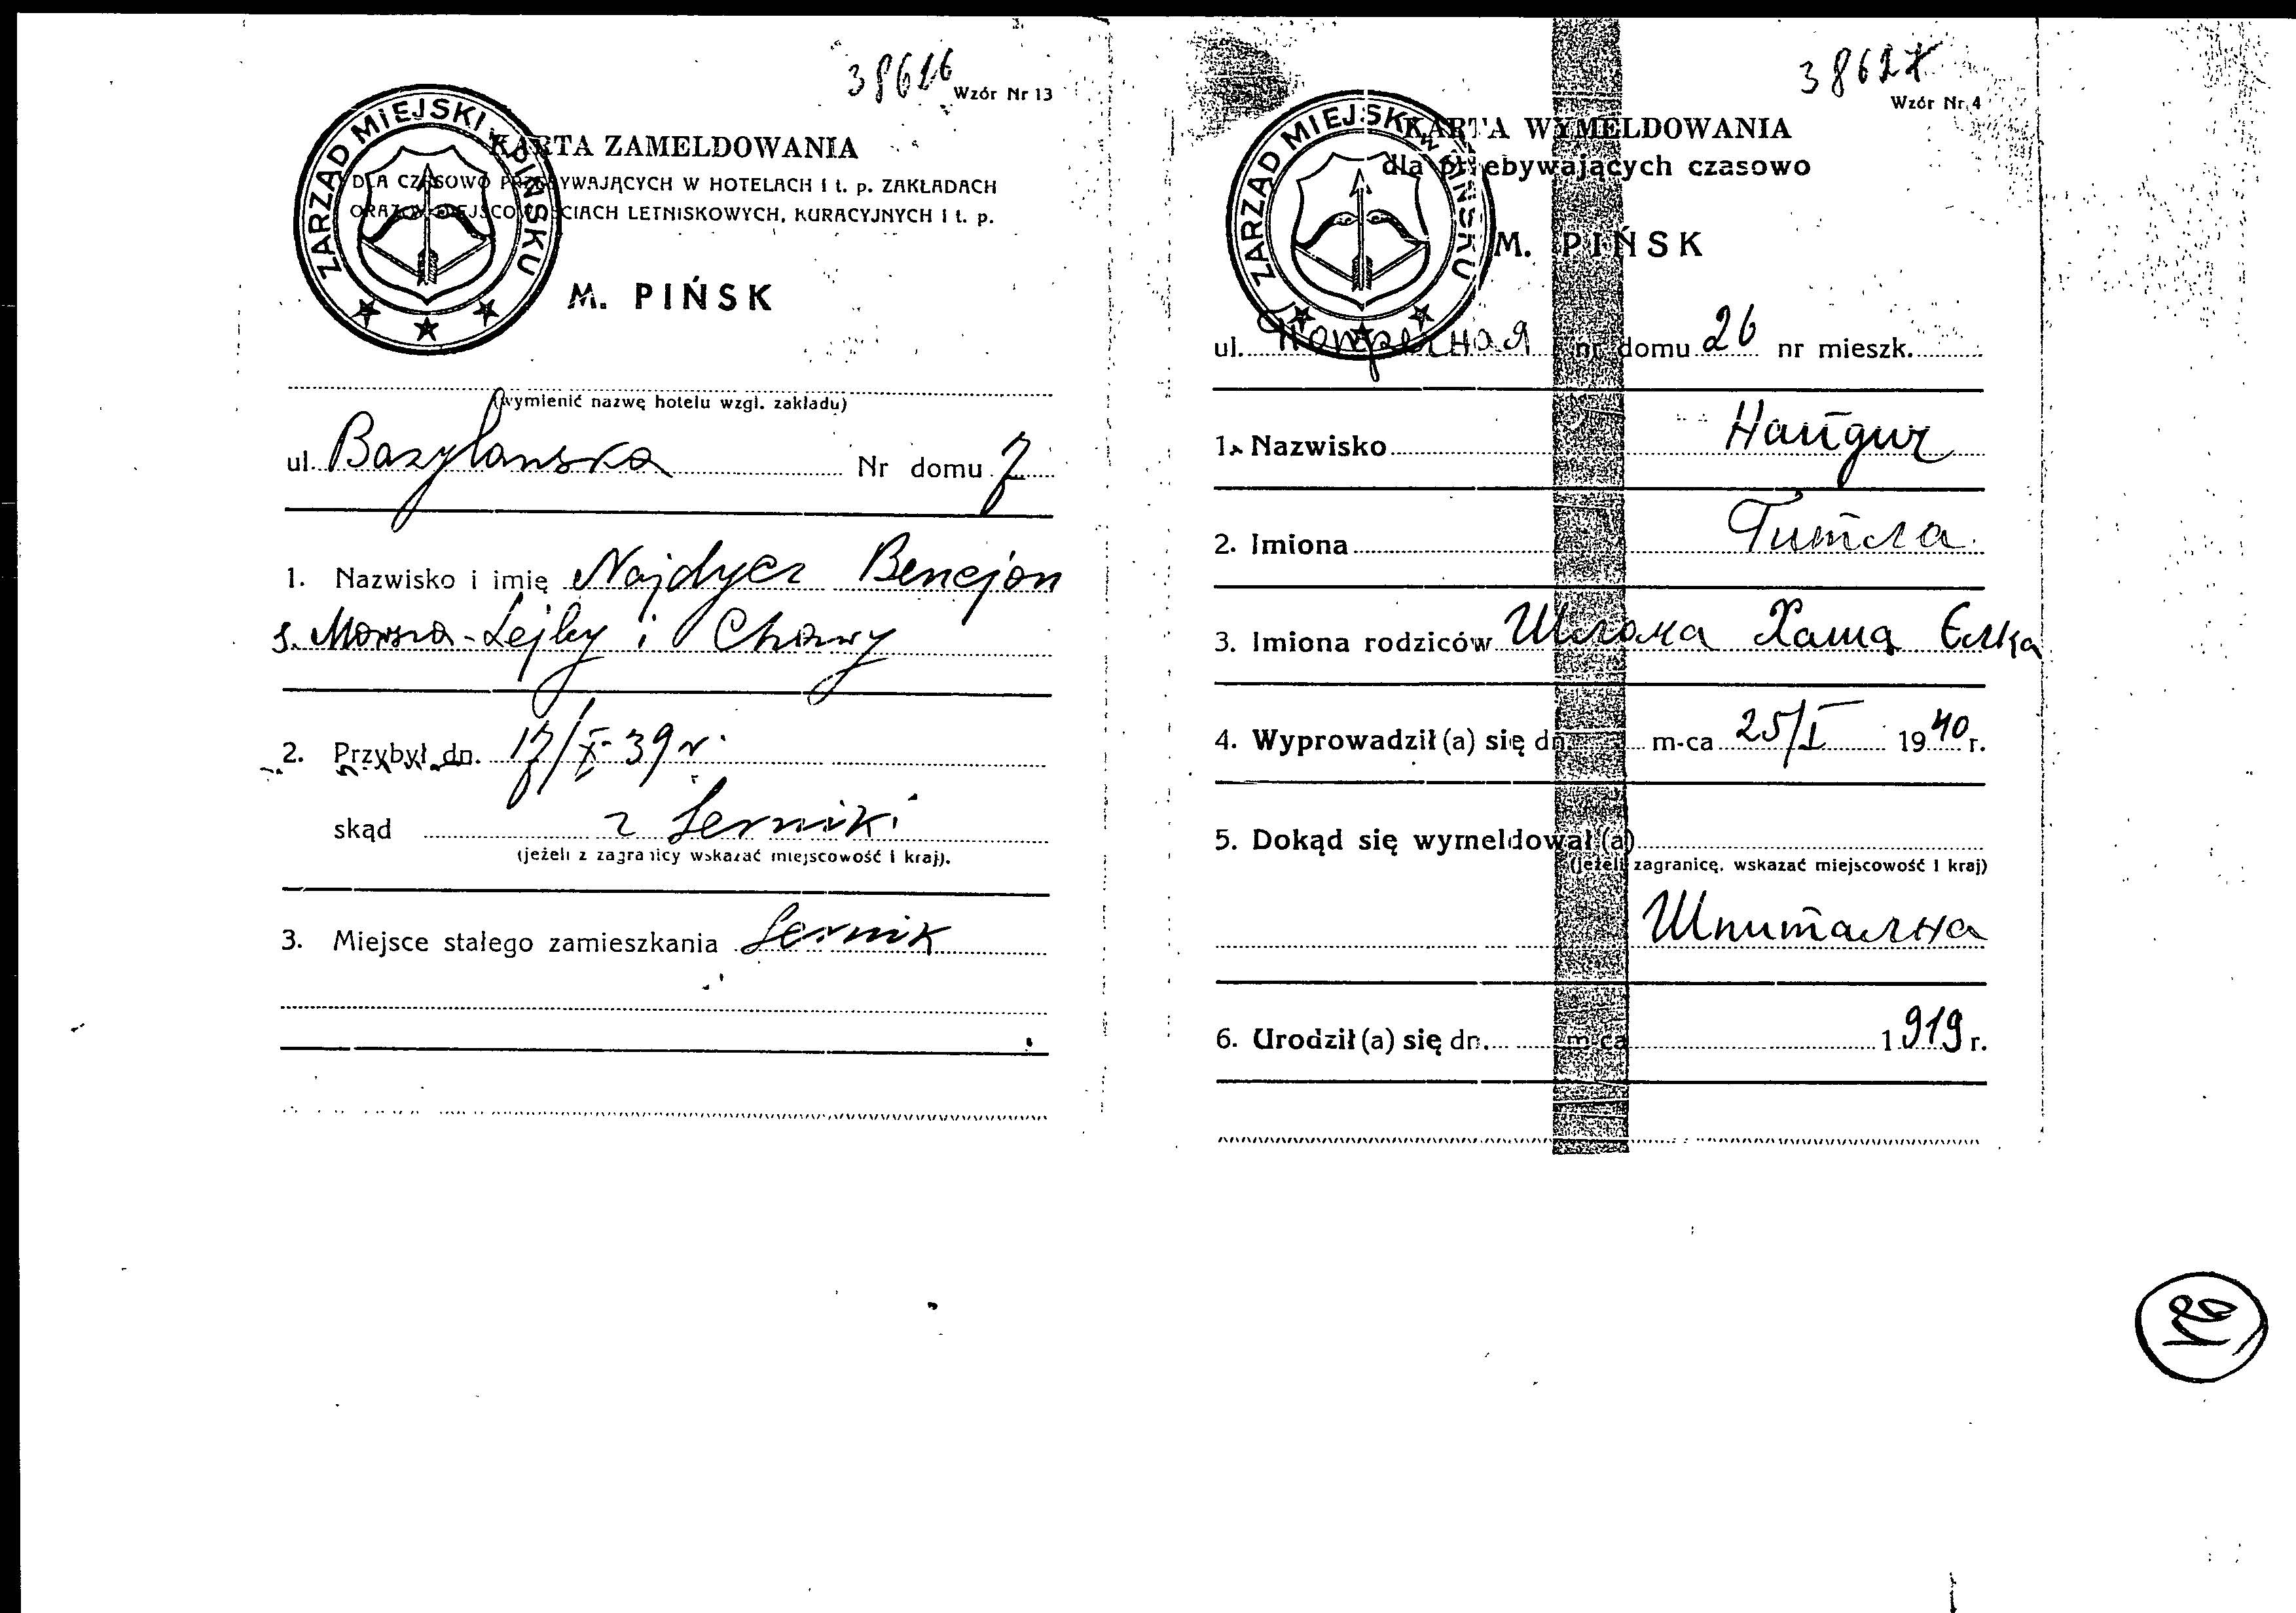 38616
Wzór Nr 13
ZARZĄD MIEJSKI w PIŃSKU
KARTA ZAMELDOWANIA
DLA CZASOWO PRZEBYWAJĄCYCH W HOTELACH I t. p. ZAKŁADACH
ORAZ W MIEJSCOWOŚCIACH LETNISKOWYCH, KURACYJNYCH I t. p.
M. PIŃSK
(wymienić nazwę hotelu wzgl. zakładu)
ul. Bazylanska Nr domu 7
1. Nazwisko i imię Najdycz Bencjon
s. Mowsza-Lejby i Chawy
2. Przybył dn. 17/X-39 r.
skąd z Serniki
(jeżeli z zagranicy wskazać miejscowość i kraj).
3. Miejsce stałego zamieszkania Sernik
38627
Wzór Nr 4
ZARZĄD MIEJSKI w PIŃSKU
KARTA WYMELDOWANIA
dla przebywających czasowo
M. PIŃSK
ul. nr domu 26 nr mieszk.
1. Nazwisko Найдич
2. Imiona Гитла
3. Imiona rodziców Шлома Хаша Елка
4. Wyprowadził (a) się dn. m-ca 25/I 1940 r.
5. Dokąd się wymeldował (a)
(jeżeli zagranicę, wskazać miejscowość i kraj)
Шпитална
6. Urodził (a) się dn. m-ca 1919 r.